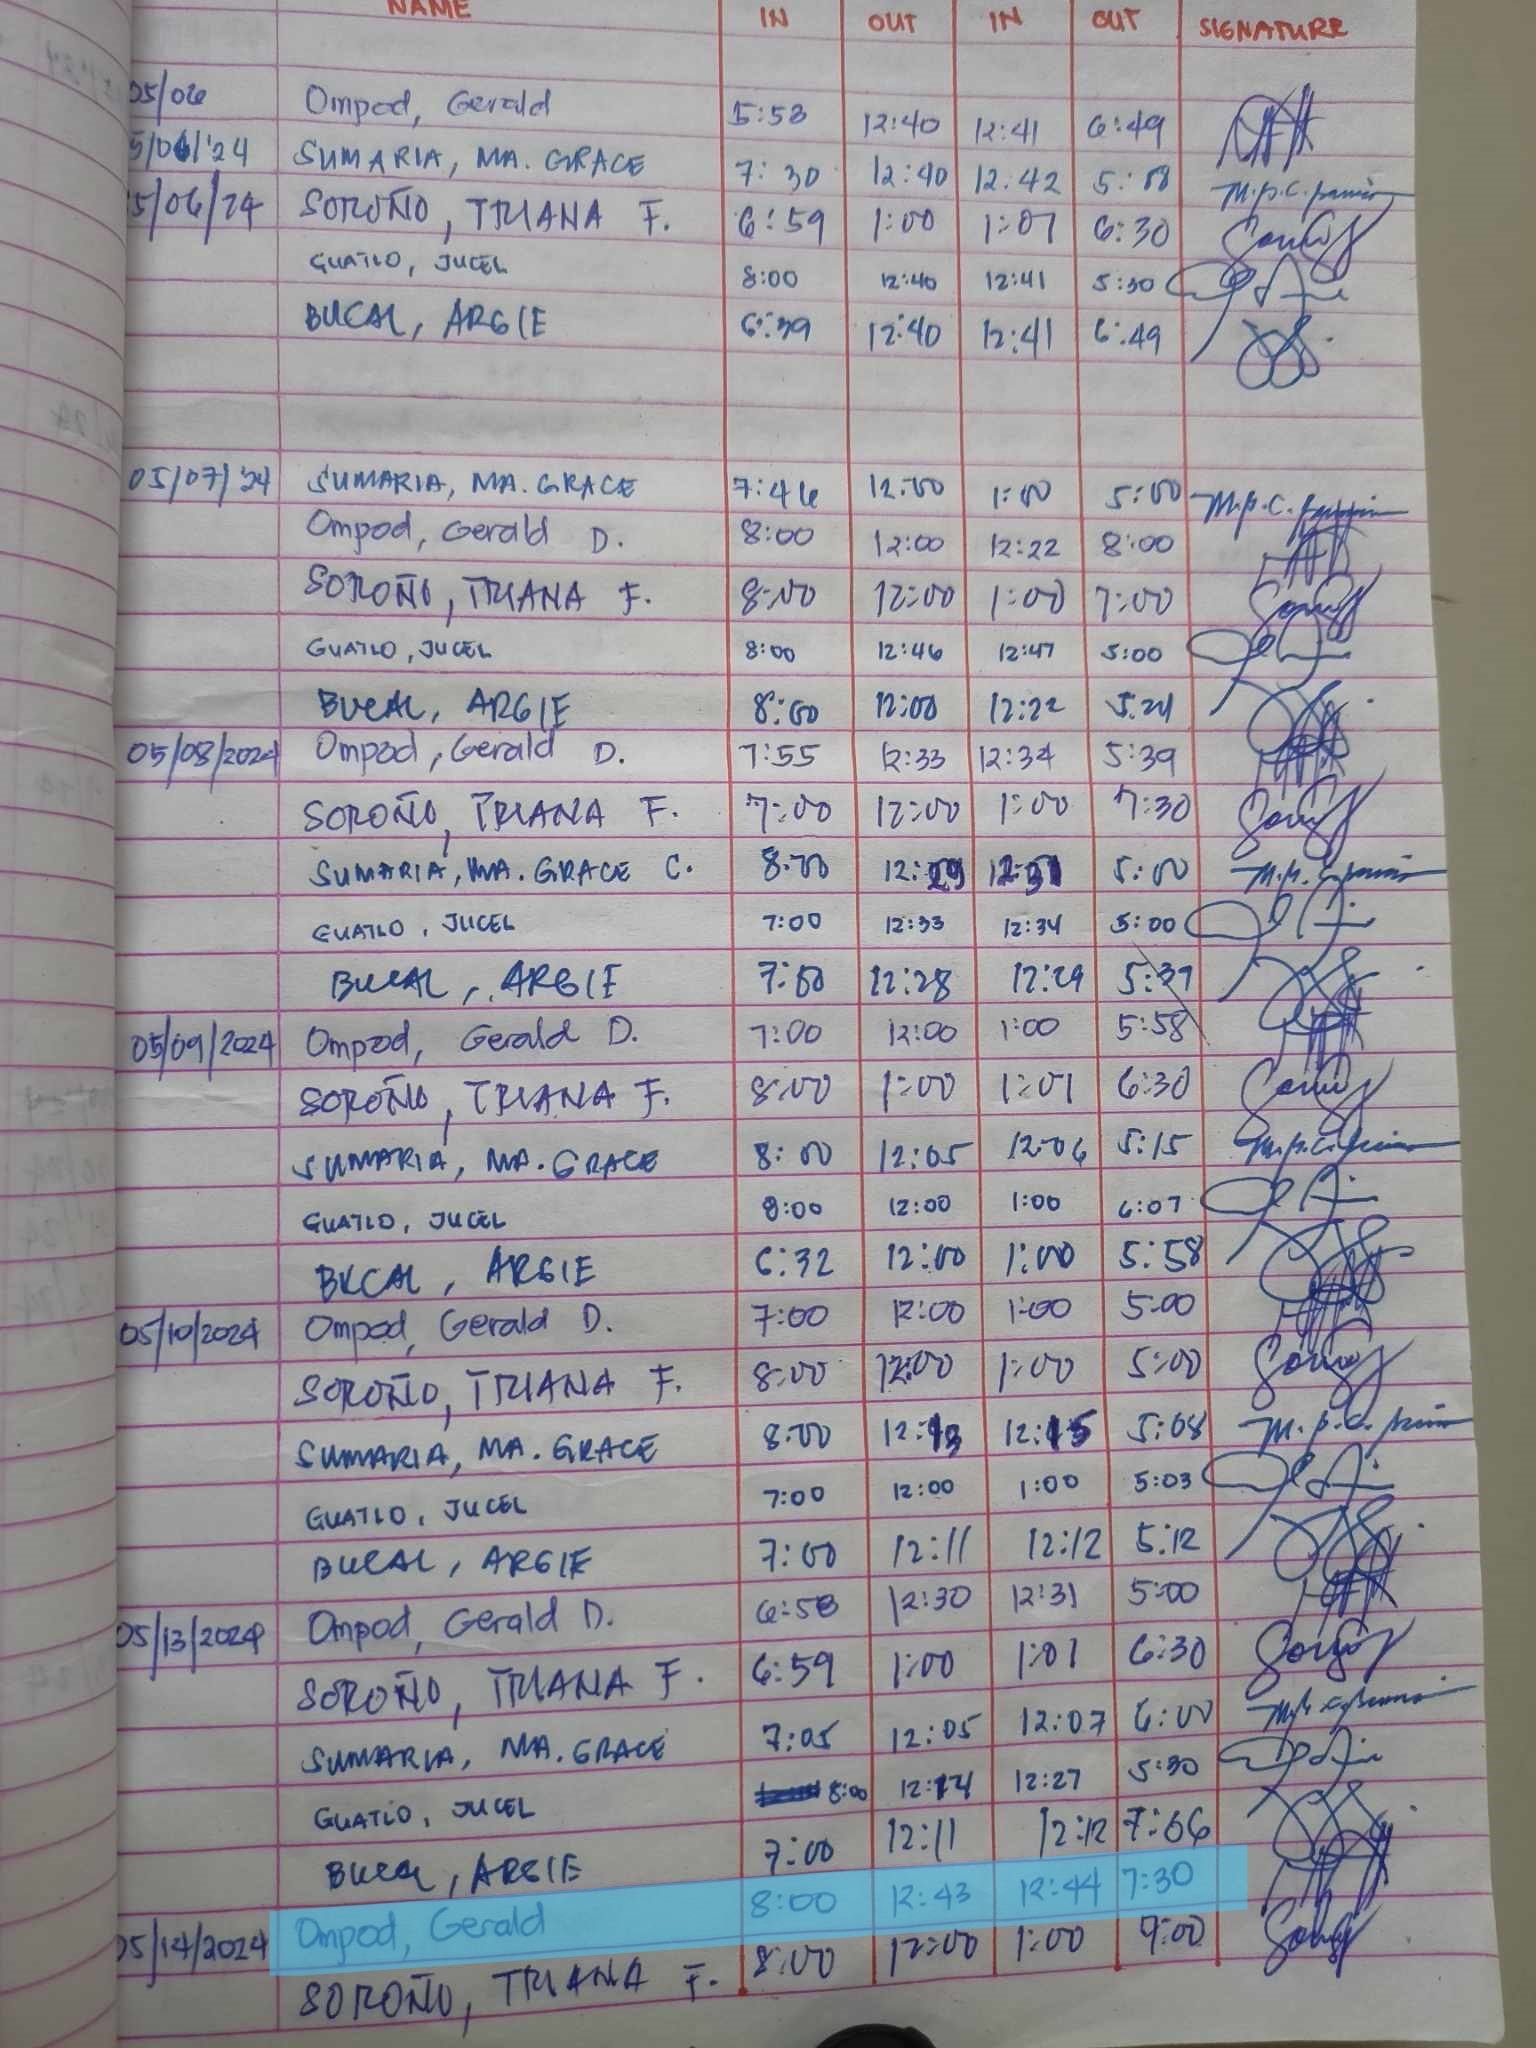 NAME IN OUT IN OUT SIGNATURE
05/06 Ompod, Gerald 5:53 12:40 12:41 6:49
5/06/'24 SUMARIA, MA. GRACE 7:30 12:40 12:42 5:08
5/06/24 SOROÑO, TRIANA F. 6:59 1:00 1:01 6:30
GUATLO, JUCEL 8:00 12:40 12:41 5:30
BUCAL, ARGIE 6:39 12:40 12:41 6:49
05/07/'24 SUMARIA, MA. GRACE 7:46 12:00 1:00 5:00
Ompod, Gerald D. 8:00 12:00 12:22 8:00
SOROÑO, TRIANA F. 8:00 12:00 1:00 7:00
GUATLO, JUCEL 8:00 12:46 12:47 5:00
BUCAL, ARGIE 8:00 12:00 12:22 5:24
05/08/2024 Ompod, Gerald D. 7:55 12:33 12:34 5:39
SOROÑO, TRIANA F. 7:00 12:00 1:00 7:30
SUMARIA, MA. GRACE C. 8:00 12:29 12:31 5:00
GUATLO, JUCEL 7:00 12:33 12:34 5:00
BUCAL, ARGIE 7:00 12:28 12:29 5:37
05/09/2024 Ompod, Gerald D. 7:00 12:00 1:00 5:58
SOROÑO, TRIANA F. 8:00 1:00 1:01 6:30
SUMARIA, MA. GRACE 8:00 12:05 12:06 5:15
GUATLO, JUCEL 8:00 12:00 1:00 6:07
BUCAL, ARGIE 6:32 12:00 1:00 5:58
05/10/2024 Ompod, Gerald D. 7:00 12:00 1:00 5:00
SOROÑO, TRIANA F. 8:00 12:00 1:00 5:00
SUMARIA, MA. GRACE 8:00 12:13 12:15 5:08
GUATLO, JUCEL 7:00 12:00 1:00 5:03
BUCAL, ARGIE 7:00 12:11 12:12 5:12
05/13/2024 Ompod, Gerald D. 6:58 12:30 12:31 5:00
SOROÑO, TRIANA F. 6:59 1:00 1:01 6:30
SUMARIA, MA. GRACE 7:05 12:05 12:07 6:00
GUATLO, JUCEL 8:00 12:14 12:27 5:30
BUCAL, ARGIE 7:00 12:11 12:12 7:06
05/14/2024 Ompod, Gerald 8:00 12:43 12:44 7:30
SOROÑO, TRIANA F. 8:00 12:00 1:00 9:00